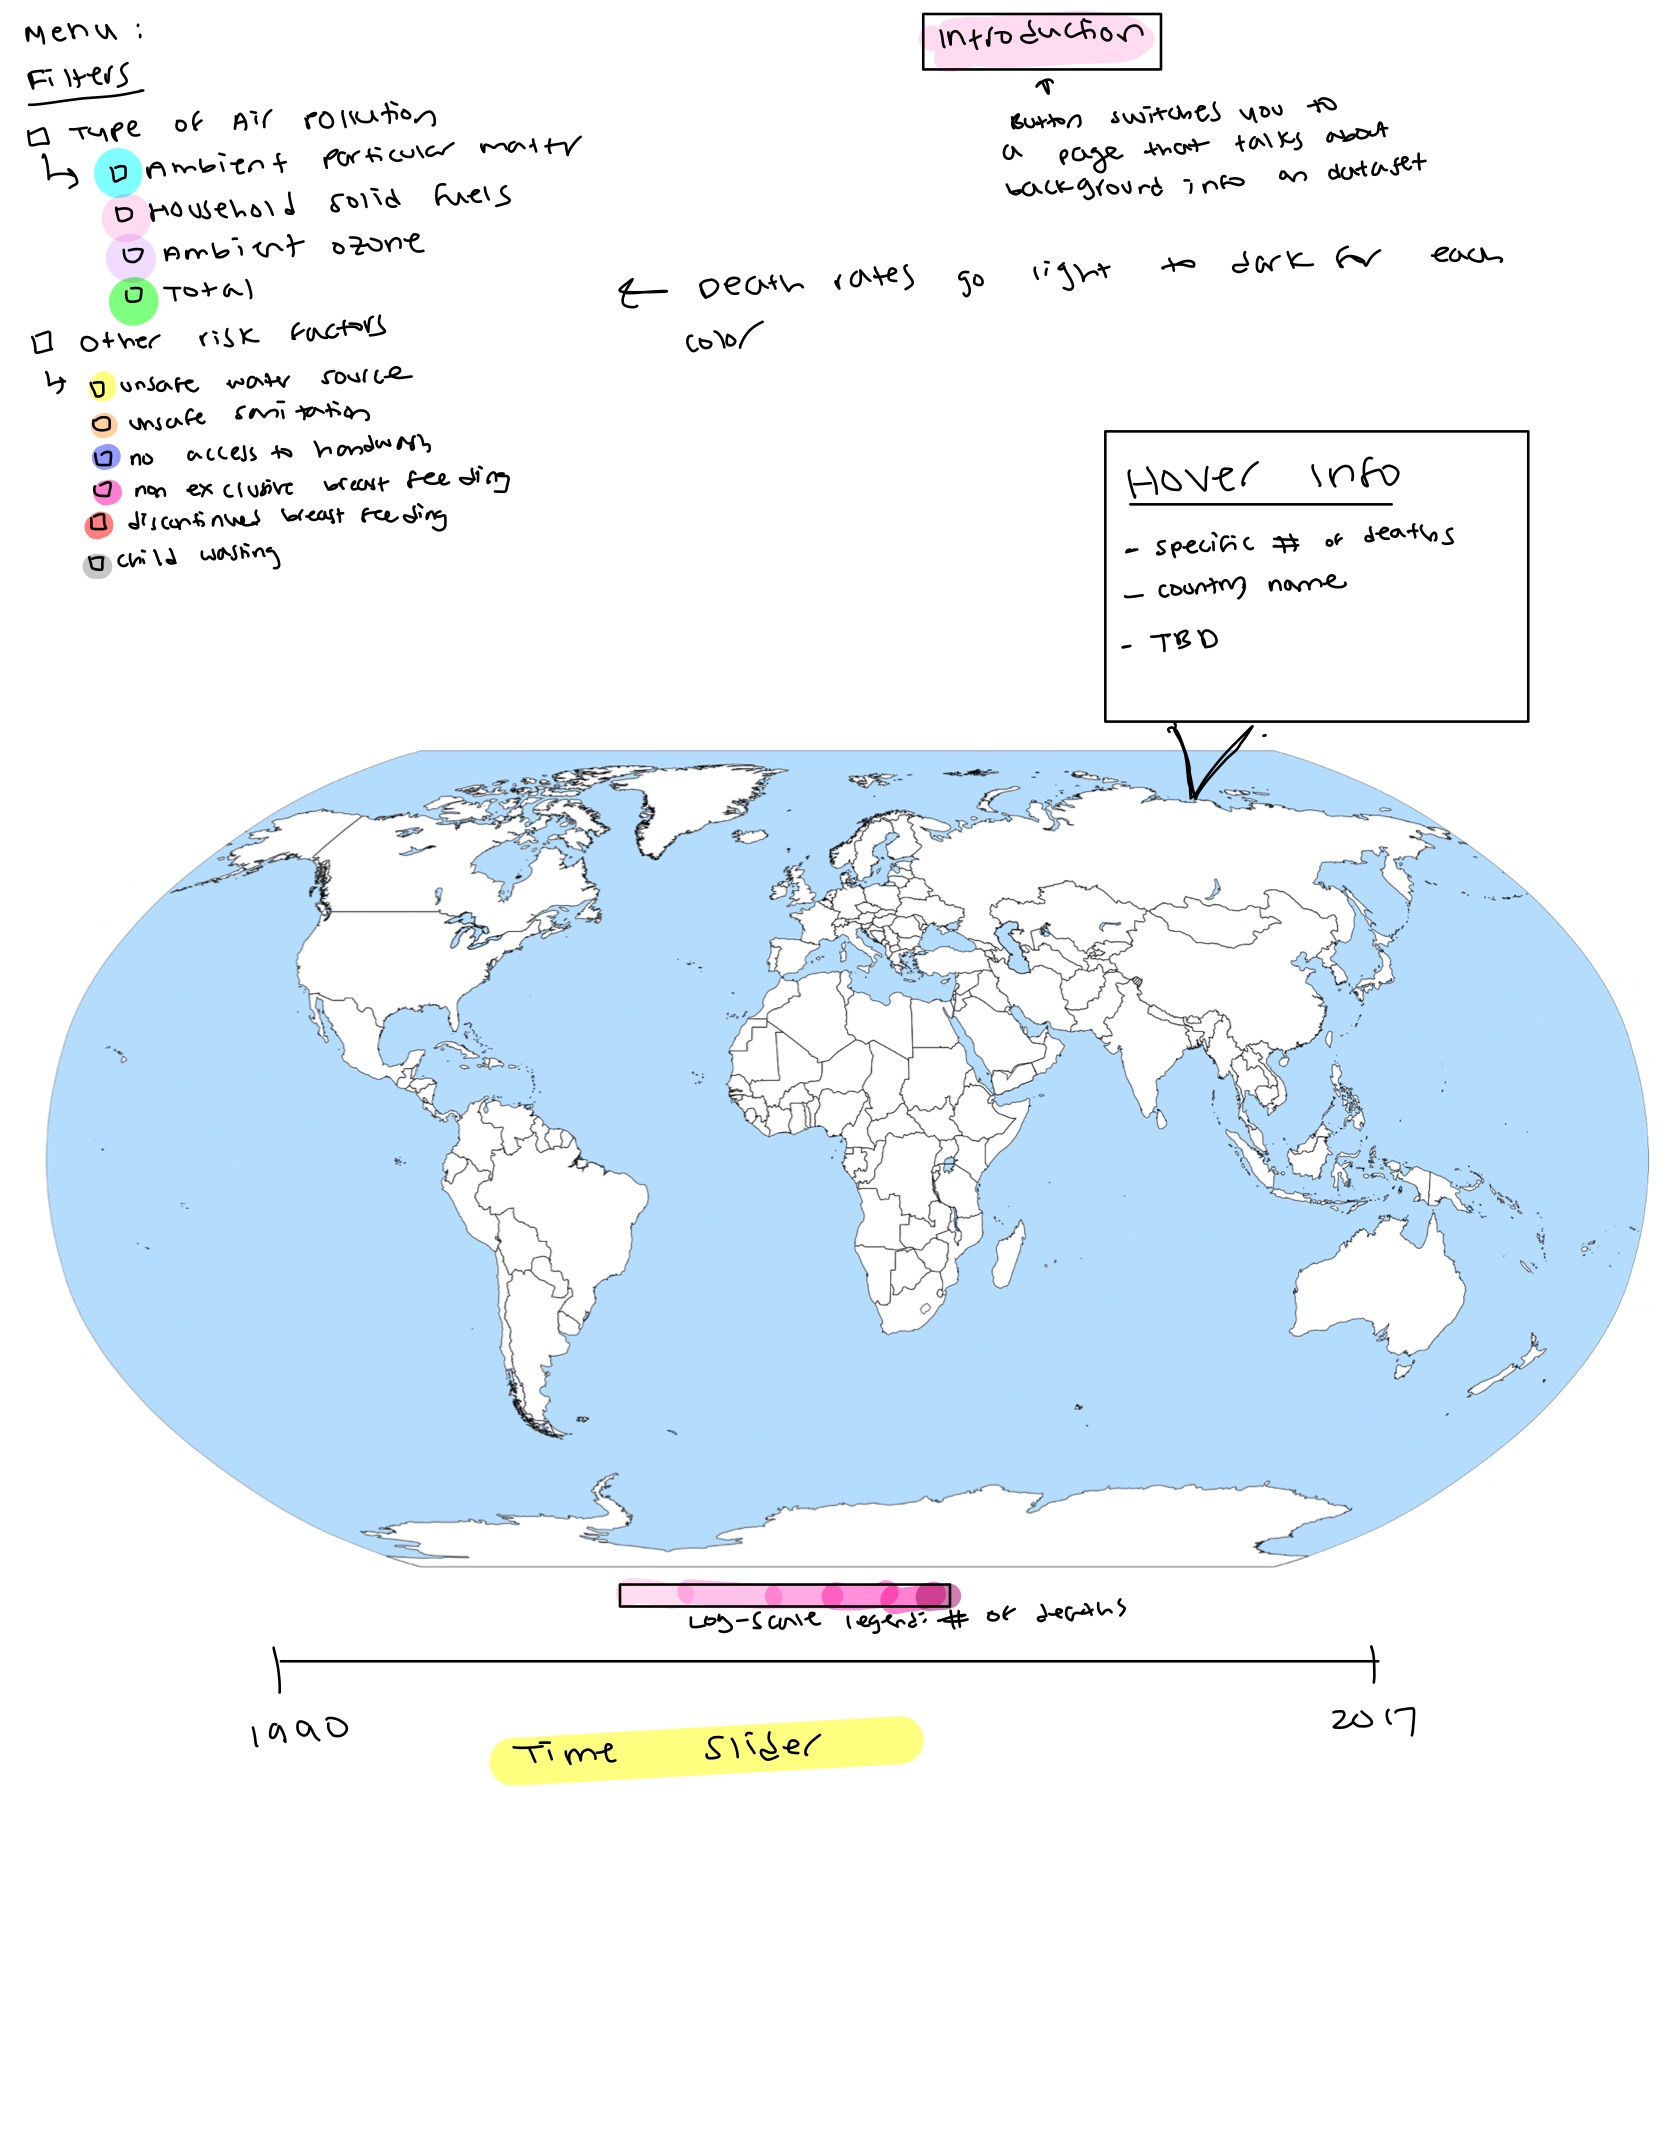 Menu:
Filters
Type of Air Pollution
Ambient particular mattr
Household solid fuels
Ambient ozone
Total
Other risk factors
unsafe water source
unsafe sanitation
no access to handwash
non exclusive breast feeding
discontinued breast feeding
child wasting
Introduction
Button switches you to
a page that talks about
background info on dataset
← Death rates go light to dark for each
color
Hover Info
- specific # of deaths
- country name
- TBD
Log-scale legend: # of deaths
1990
2017
Time Slider